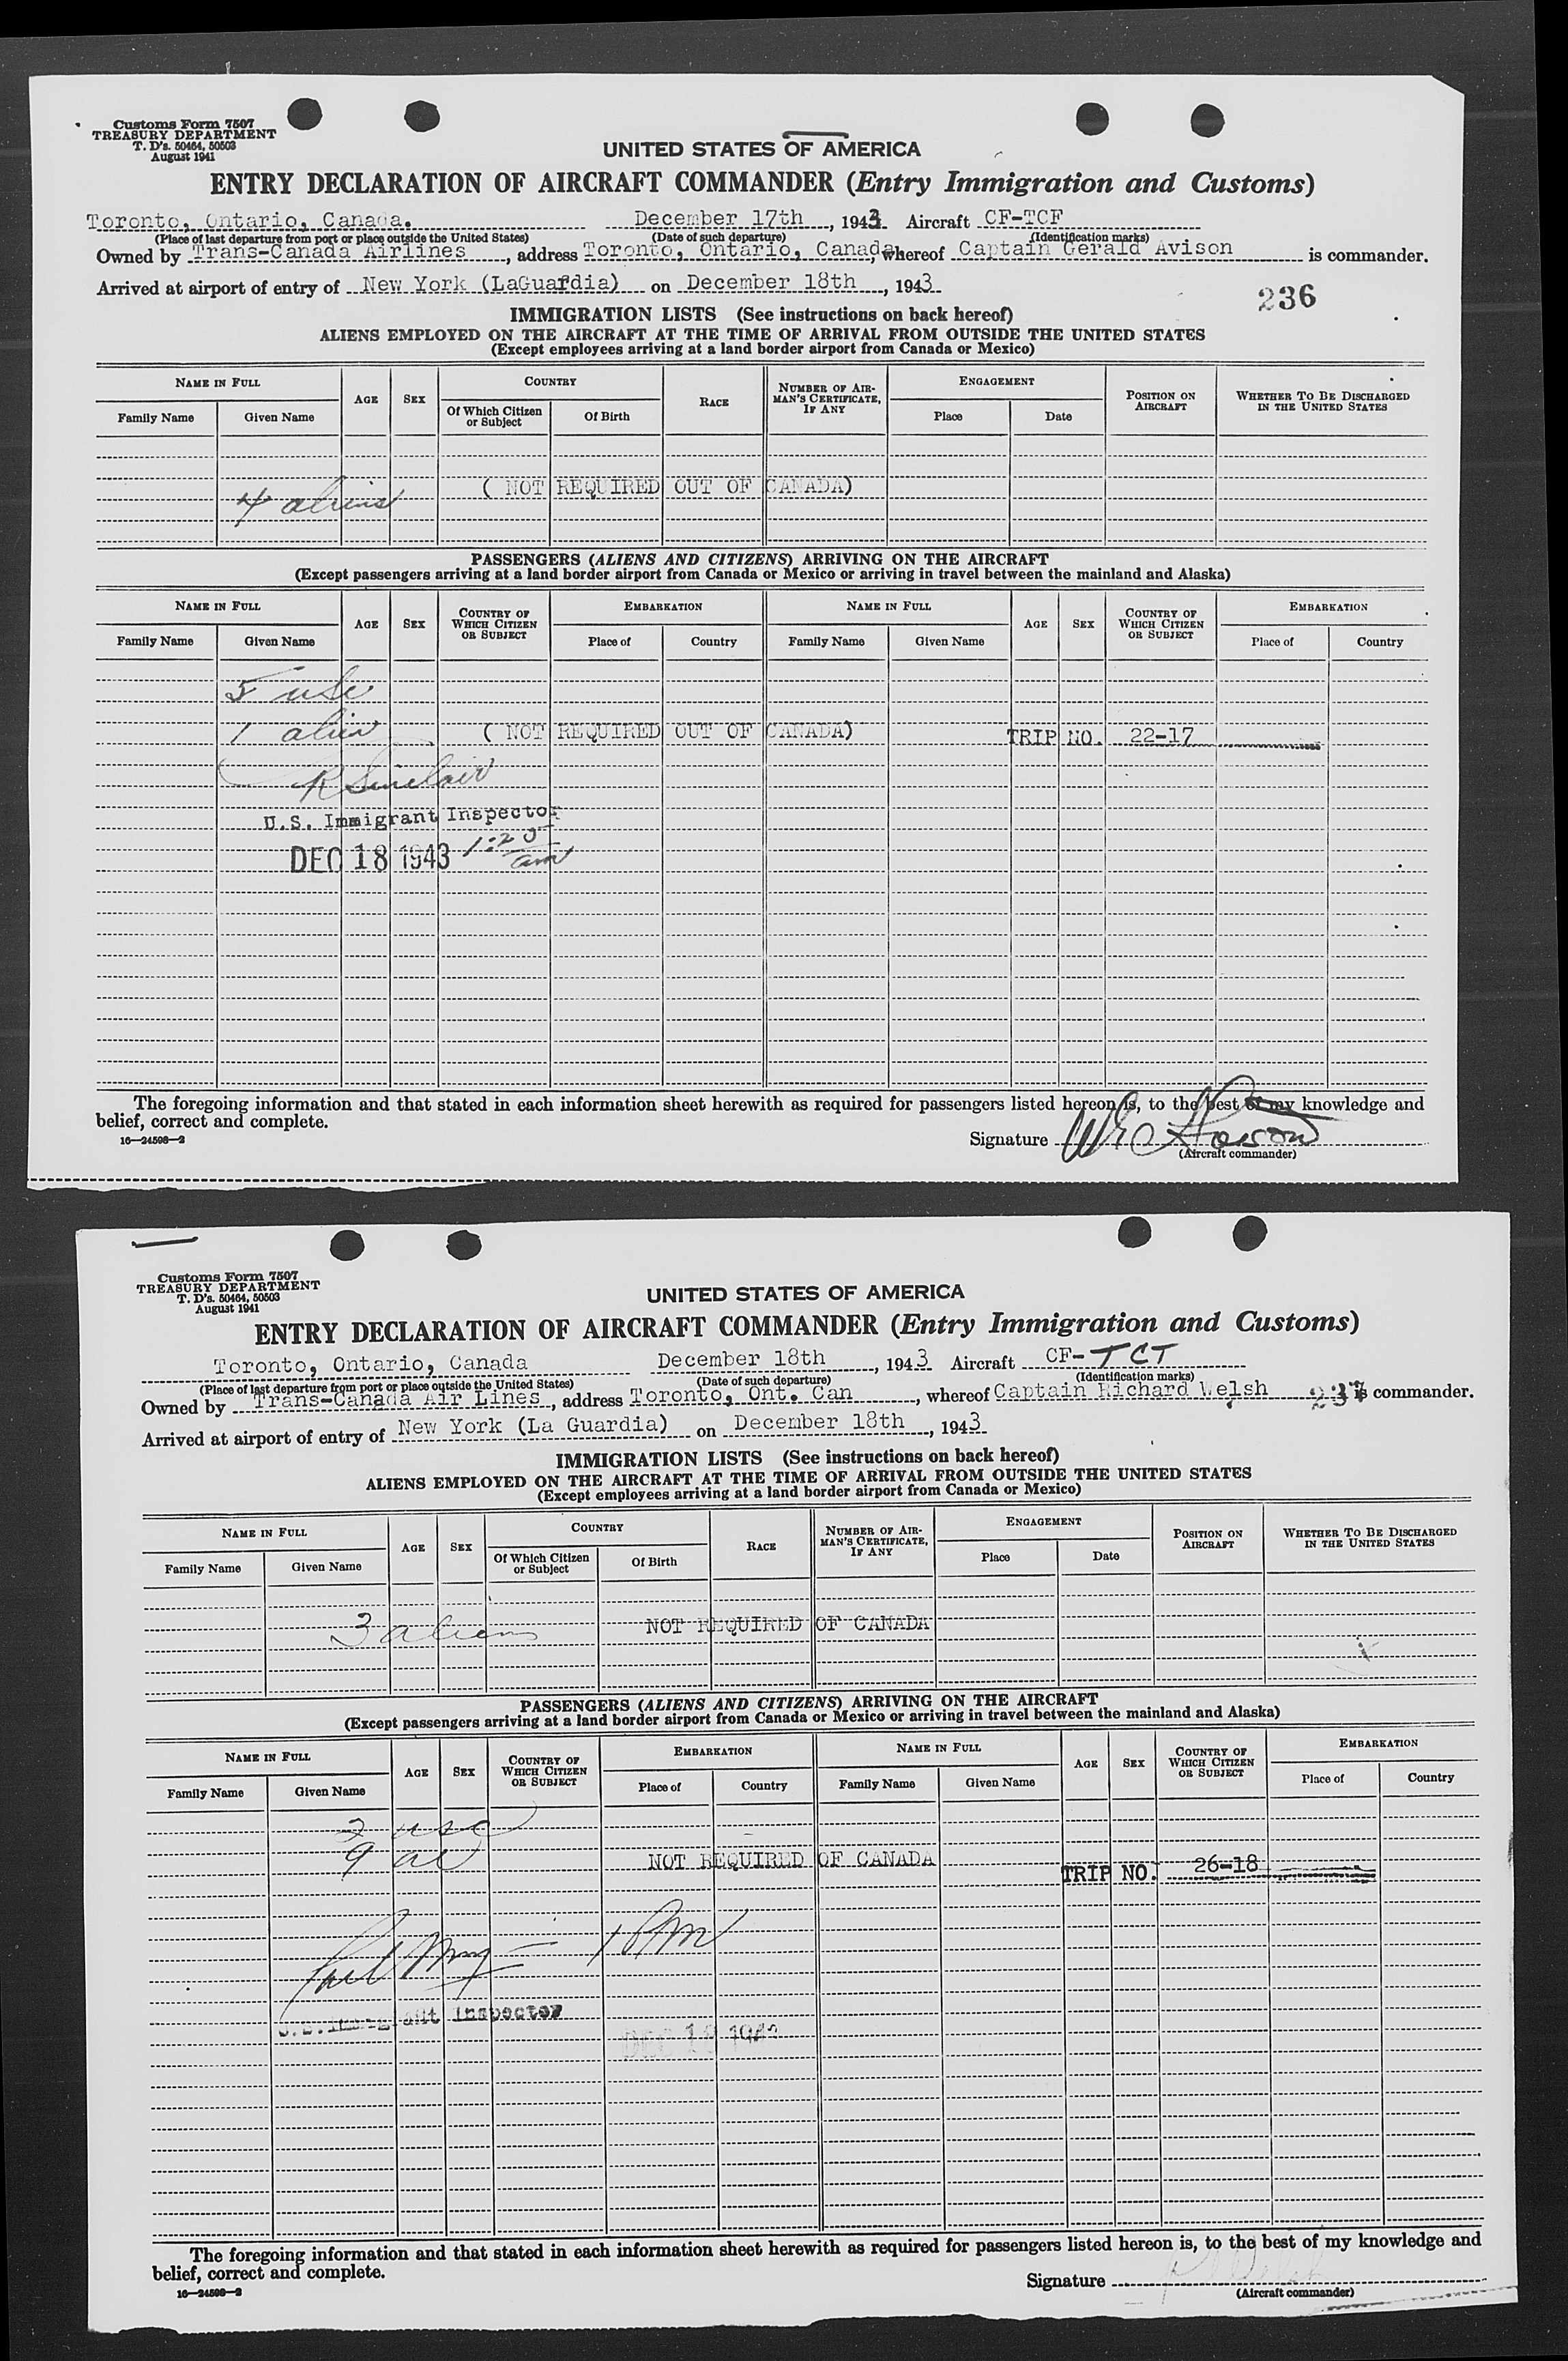 Customs Form 7507
TREASURY DEPARTMENT
T. D's. 50464, 50503
August 1941
UNITED STATES OF AMERICA
ENTRY DECLARATION OF AIRCRAFT COMMANDER (Entry Immigration and Customs)
Toronto, Ontario, Canada. December 17th, 1943 Aircraft CF-TCF
(Place of last departure from port or place outside the United States) (Date of such departure) (Identification marks)
Owned by Trans-Canada Airlines, address Toronto, Ontario, Canada, whereof Captain Gerald Avison is commander.
Arrived at airport of entry of New York (LaGuardia) on December 18th, 1943
236
IMMIGRATION LISTS (See instructions on back hereof)
ALIENS EMPLOYED ON THE AIRCRAFT AT THE TIME OF ARRIVAL FROM OUTSIDE THE UNITED STATES
(Except employees arriving at a land border airport from Canada or Mexico)
NAME IN FULL AGE SEX COUNTRY RACE NUMBER OF AIRMAN'S CERTIFICATE, IF ANY ENGAGEMENT POSITION ON AIRCRAFT WHETHER TO BE DISCHARGED IN THE UNITED STATES
Family Name Given Name Of Which Citizen or Subject Of Birth Place Date
4 aliens ( NOT REQUIRED OUT OF CANADA)
PASSENGERS (ALIENS AND CITIZENS) ARRIVING ON THE AIRCRAFT
(Except passengers arriving at a land border airport from Canada or Mexico or arriving in travel between the mainland and Alaska)
NAME IN FULL AGE SEX COUNTRY OF WHICH CITIZEN OR SUBJECT EMBARKATION NAME IN FULL AGE SEX COUNTRY OF WHICH CITIZEN OR SUBJECT EMBARKATION
Family Name Given Name Place of Country Family Name Given Name Place of Country
5 usc
1 alien ( NOT REQUIRED OUT OF CANADA) TRIP NO. 22-17
R Sinclair
U.S. Immigrant Inspector
DEC 18 1943 1:20 am
The foregoing information and that stated in each information sheet herewith as required for passengers listed hereon is, to the best of my knowledge and
belief, correct and complete.
16—24598—2
Signature
(Aircraft commander)
Customs Form 7507
TREASURY DEPARTMENT
T. D's. 50464, 50503
August 1941
UNITED STATES OF AMERICA
ENTRY DECLARATION OF AIRCRAFT COMMANDER (Entry Immigration and Customs)
Toronto, Ontario, Canada December 18th, 1943 Aircraft CF-TCT
(Place of last departure from port or place outside the United States) (Date of such departure) (Identification marks)
Owned by Trans-Canada Air Lines, address Toronto, Ont. Can, whereof Captain Richard Welsh 237 is commander.
Arrived at airport of entry of New York (La Guardia) on December 18th, 1943
IMMIGRATION LISTS (See instructions on back hereof)
ALIENS EMPLOYED ON THE AIRCRAFT AT THE TIME OF ARRIVAL FROM OUTSIDE THE UNITED STATES
(Except employees arriving at a land border airport from Canada or Mexico)
NAME IN FULL AGE SEX COUNTRY RACE NUMBER OF AIRMAN'S CERTIFICATE, IF ANY ENGAGEMENT POSITION ON AIRCRAFT WHETHER TO BE DISCHARGED IN THE UNITED STATES
Family Name Given Name Of Which Citizen or Subject Of Birth Place Date
3 aliens NOT REQUIRED OF CANADA
PASSENGERS (ALIENS AND CITIZENS) ARRIVING ON THE AIRCRAFT
(Except passengers arriving at a land border airport from Canada or Mexico or arriving in travel between the mainland and Alaska)
NAME IN FULL AGE SEX COUNTRY OF WHICH CITIZEN OR SUBJECT EMBARKATION NAME IN FULL AGE SEX COUNTRY OF WHICH CITIZEN OR SUBJECT EMBARKATION
Family Name Given Name Place of Country Family Name Given Name Place of Country
usc
9 al NOT REQUIRED OF CANADA TRIP NO. 26-18
1 PM
U.S. Immigrant Inspector
DEC 18 1943
The foregoing information and that stated in each information sheet herewith as required for passengers listed hereon is, to the best of my knowledge and
belief, correct and complete.
16—24598—2
Signature
(Aircraft commander)